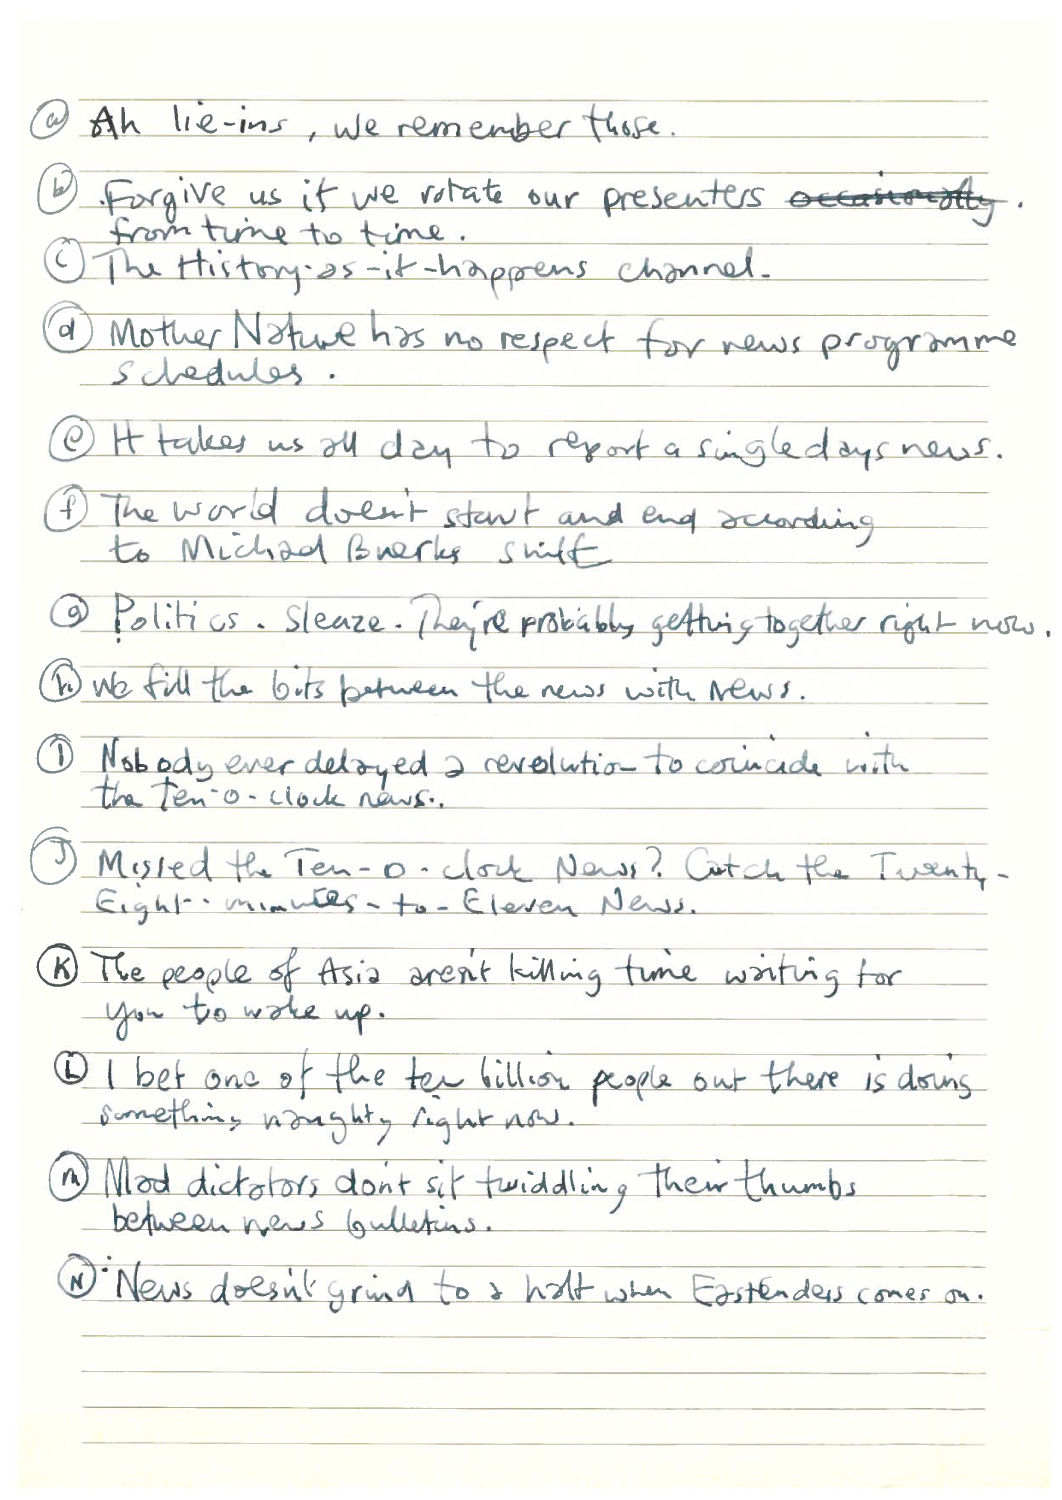 a Ah lie-ins, we remember those.
b Forgive us if we rotate our presenters occasionally.
from time to time.
c The History-as-it-happens channel.
d Mother Nature has no respect for news programme
schedules.
e It takes us all day to report a single days news.
f The world doesn't start and end according
to Michael Buerks shift
g Politics. Sleaze. They're probably getting together right now.
h We fill the bits between the news with news.
i Nobody ever delayed a revolution to coincide with
the Ten-o-clock news.
J Missed the Ten-o-clock News? Catch the Twenty-
Eight-minutes-to-Eleven News.
K The people of Asia aren't killing time waiting for
you to wake up.
L I bet one of the ten billion people out there is doing
something naughty right now.
m Mad dictators don't sit twiddling their thumbs
between news bulletins.
N News doesn't grind to a halt when Eastenders comes on.